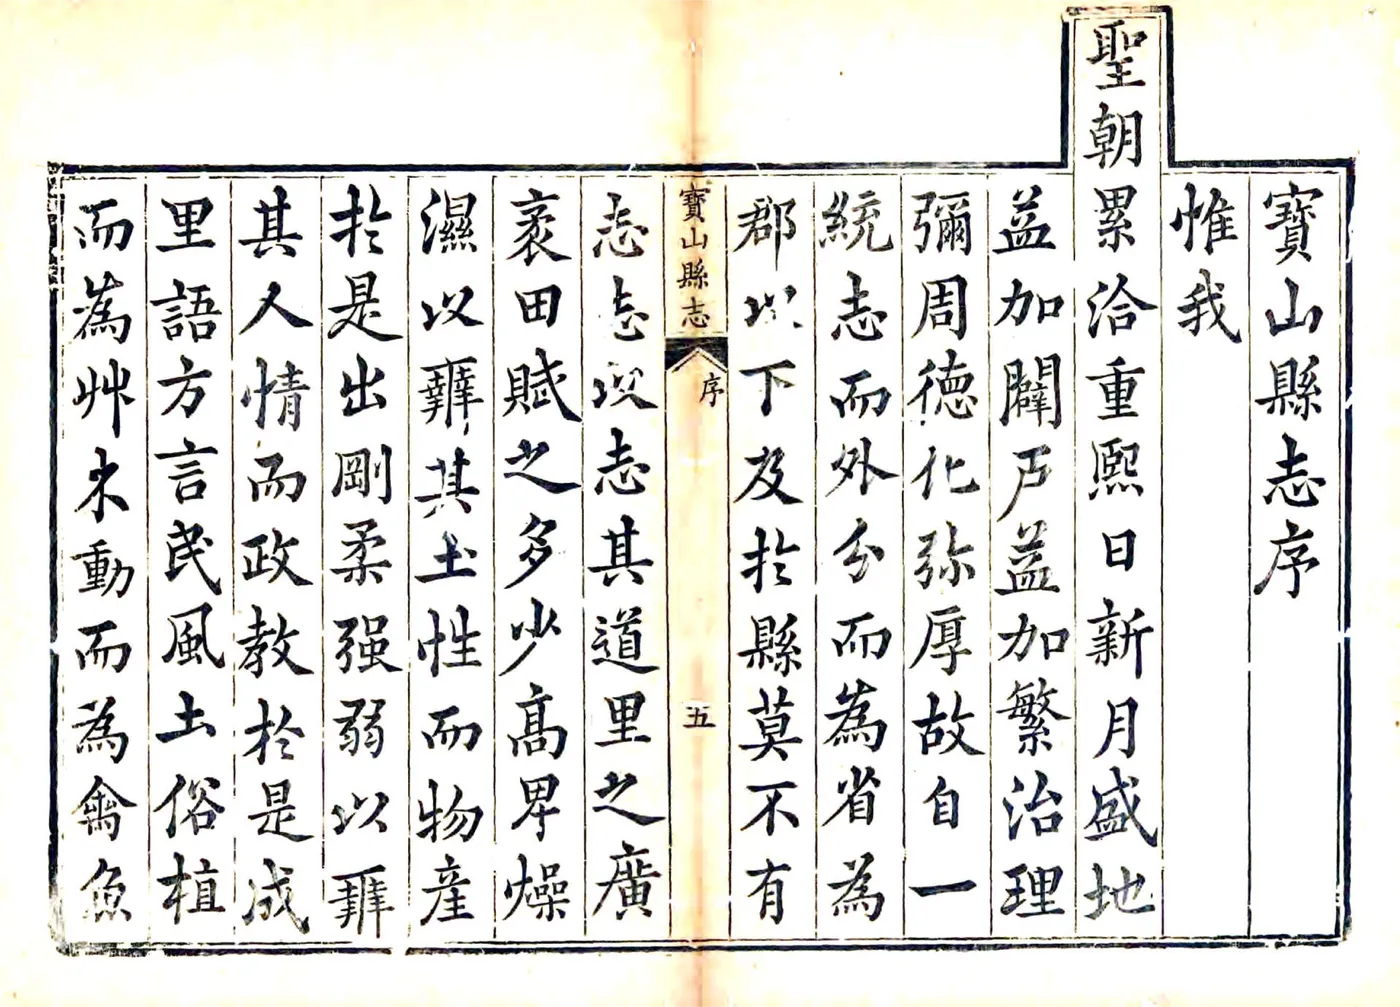 寶山縣志序
惟我
聖朝累洽重熙日新月盛地
益加闢戸益加繁治理
彌周德化弥厚故自一
統志而外分而為省為
郡以下及扵縣莫不有
寶山縣志
序
五
志志以志其道里之廣
袤田賦之多少高卑燥
濕以辨其土性而物產
扵是出剛柔强弱以辨
其人情而政教扵是成
里語方言民風土俗植
而為艸木動而為禽魚